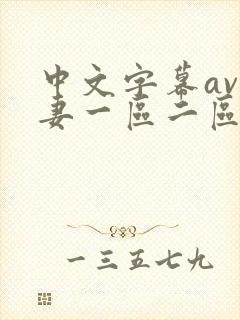 中文字幕av
妻一區二區
一三五七九